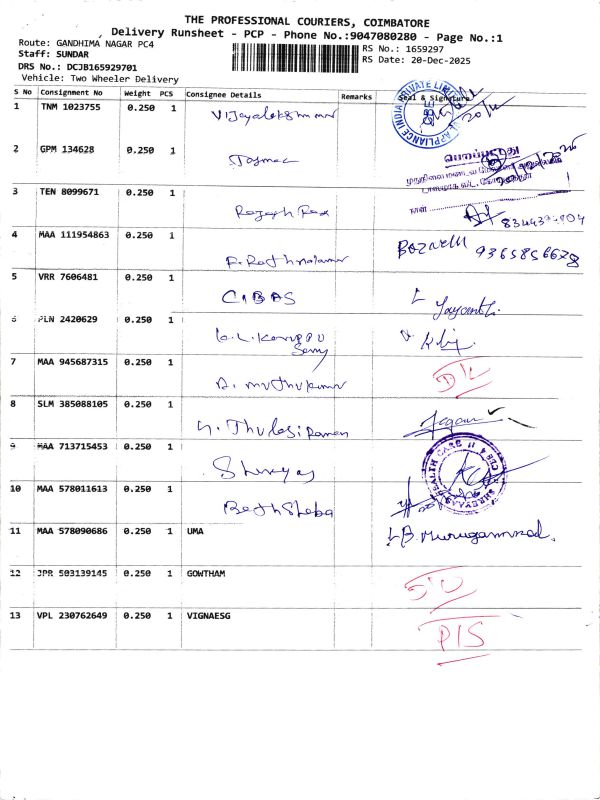 THE PROFESSIONAL COURIERS, COIMBATORE
Delivery Runsheet - PCP - Phone No.:9047080280 - Page No.:1
Route: GANDHIMA NAGAR PC4
Staff: SUNDAR
DRS No.: DCJB165929701
Vehicle: Two Wheeler Delivery
RS No.: 1659297
RS Date: 20-Dec-2025
S No Consignment No Weight PCS Consignee Details Remarks Seal & Signature
1 TNM 1023755 0.250 1
2 GPM 134628 0.250 1 Tasmac
3 TEN 8099671 0.250 1 Rajesh
8344394904
4 MAA 111954863 0.250 1 R. Rathnakumar
9365856678
5 VRR 7606481 0.250 1 CIBAS Jayanthi
6 PLN 2420629 0.250 1
7 MAA 945687315 0.250 1 A. Muthukumar D/L
8 SLM 385088105 0.250 1 Thulasi Raman Jegan
9 MAA 713715453 0.250 1 Shreyas
10 MAA 578011613 0.250 1 Beth Sheba
11 MAA 578090686 0.250 1 UMA
12 JPR 503139145 0.250 1 GOWTHAM
13 VPL 230762649 0.250 1 VIGNAESG P/S